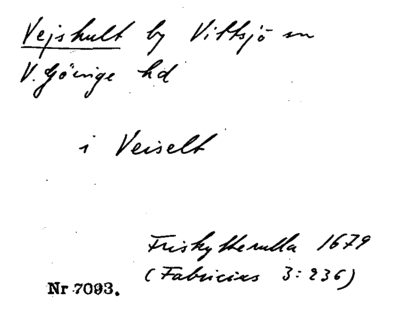 Vejshult by Vittsjö sn
V. Göinge hd
i Veiselt
Friskytterulla 1679
(Fabricius 3:236)
Nr 7093.